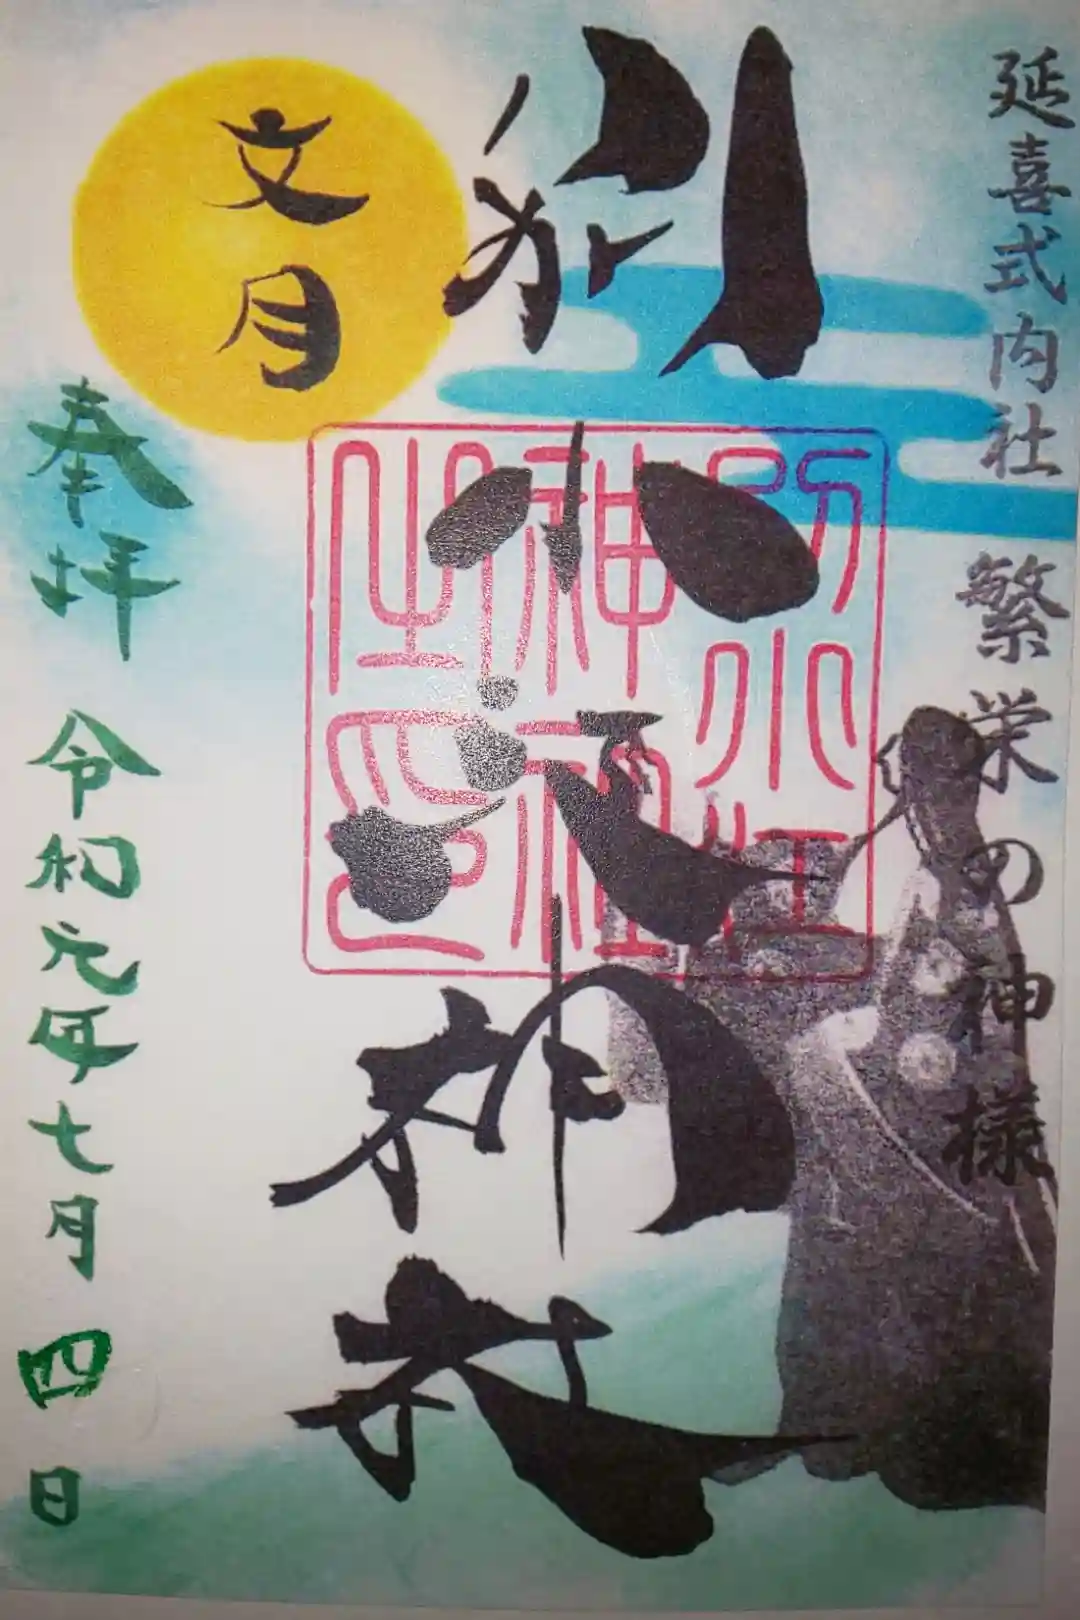 延喜式内社 繁栄の神様
別小江神社
別小江
神社
之印
文月
奉拝 令和元年七月四日